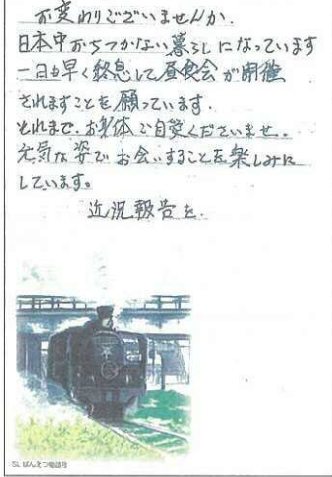 お変わりございませんか.
日本中おちつかない暮らしになっています
一日も早く終息して昼食会が開催
されますことを願っています.
それまで.お身体ご自愛くださいませ.
元気な姿でお会いすることを楽しみに
しています。
近況報告を.
SL ばんえつ物語号